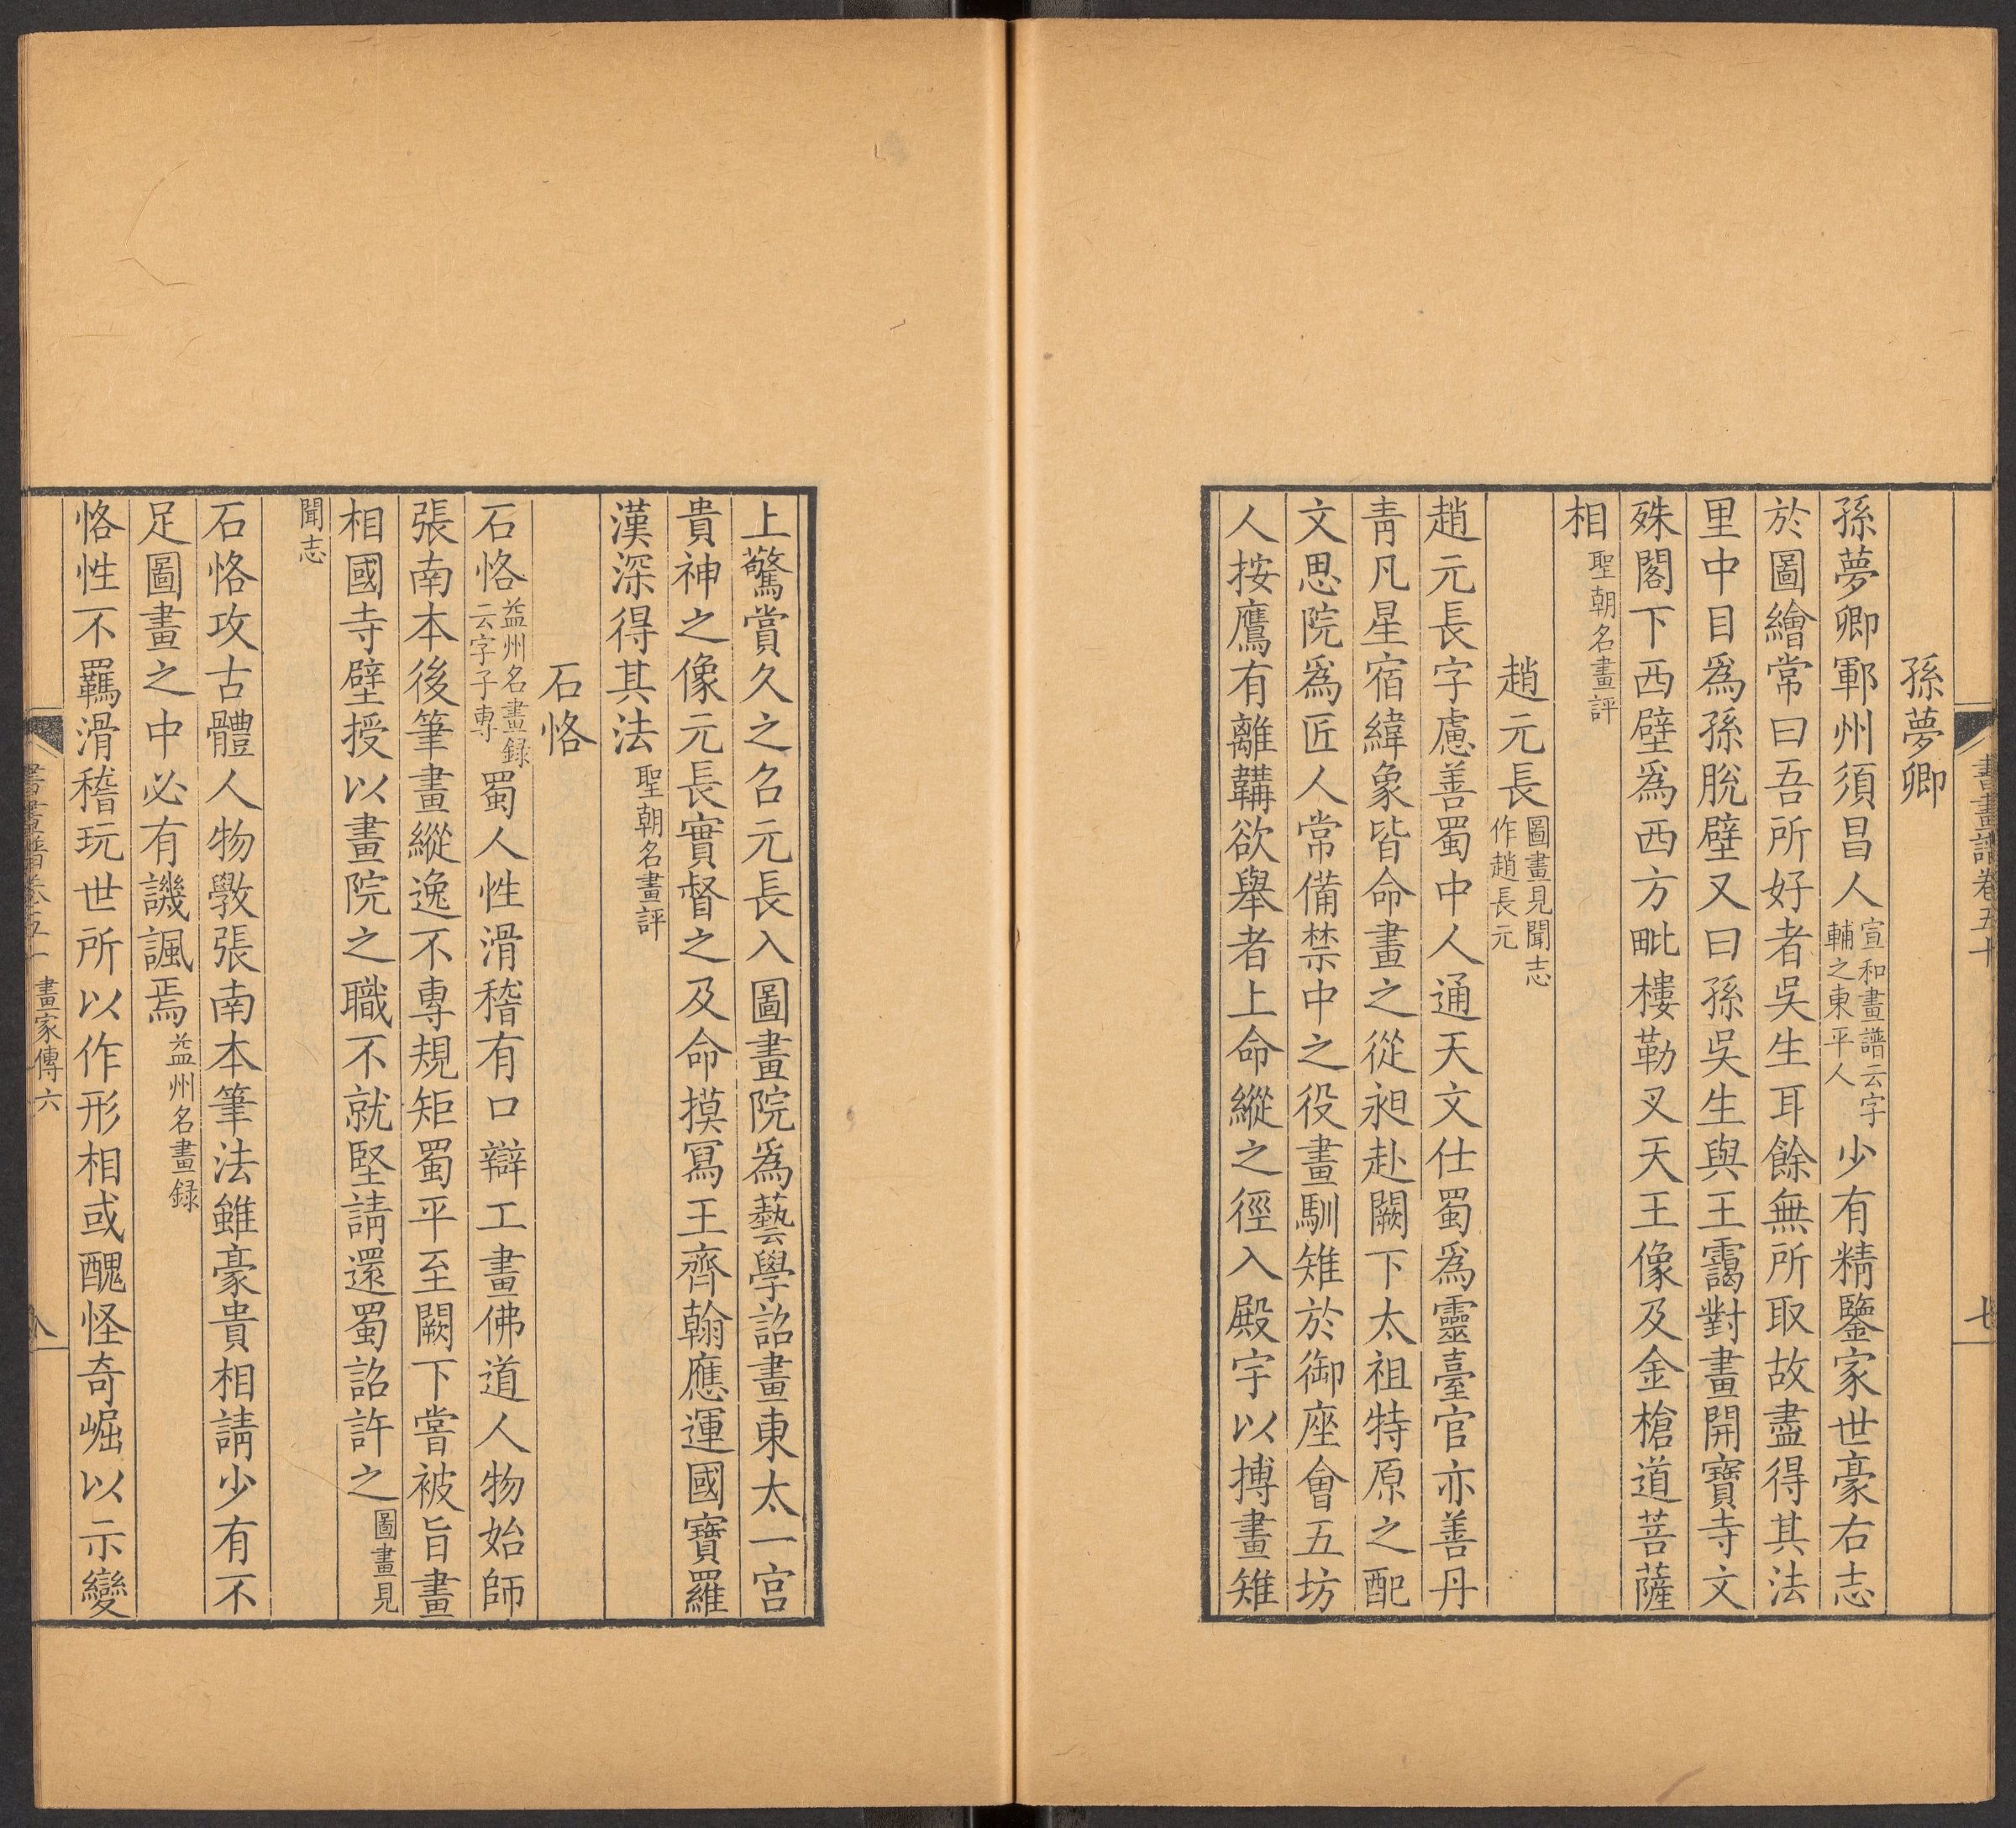 書畫譜卷五十
七
孫夢卿
孫夢卿鄆州須昌人宣和畫譜云字輔之東平人少有精鑒家世豪右志
於圖繪常曰吾所好者吳生耳餘無所取故盡得其法
里中目爲孫脫壁又曰孫吳生與王靄對畫開寶寺文
殊閣下西壁爲西方毗樓勒叉天王像及金槍道菩薩
相聖朝名畫評
趙元長圖畫見聞志作趙長元
趙元長字慮善蜀中人通天文仕蜀爲靈臺官亦善丹
青凡星宿緯象皆命畫之從昶赴闕下太祖特原之配
文思院爲匠人常備禁中之役畫馴雉於御座會五坊
人按鷹有離韝欲舉者上命縱之徑入殿宇以搏畫雉
上驚賞久之召元長入圖畫院爲藝學詔畫東太一宮
貴神之像元長實督之及命摸冩王齊翰應運國寶羅
漢深得其法聖朝名畫評
石恪
石恪益州名畫録云字子專蜀人性滑稽有口辯工畫佛道人物始師
張南本後筆畫縱逸不專規矩蜀平至闕下嘗被旨畫
相國寺壁授以畫院之職不就堅請還蜀詔許之圖畫見
聞志
石恪攻古體人物斆張南本筆法雖豪貴相請少有不
足圖畫之中必有譏諷焉益州名畫録
恪性不羈滑稽玩世所以作形相或醜怪奇崛以示變
書畫譜卷五十　畫家傳六
八